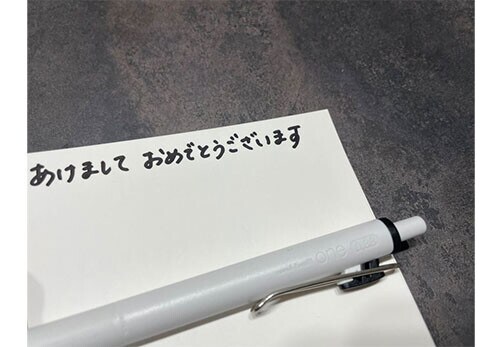 あけまして おめでとうございます